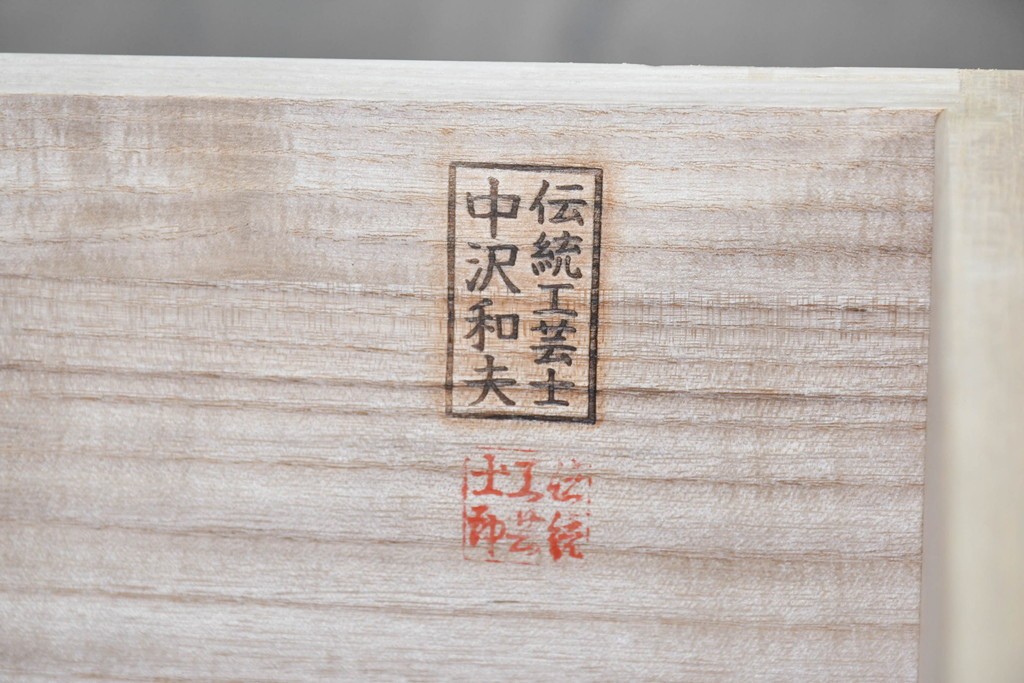 伝統工芸士
中沢和夫
伝統
工芸
士印